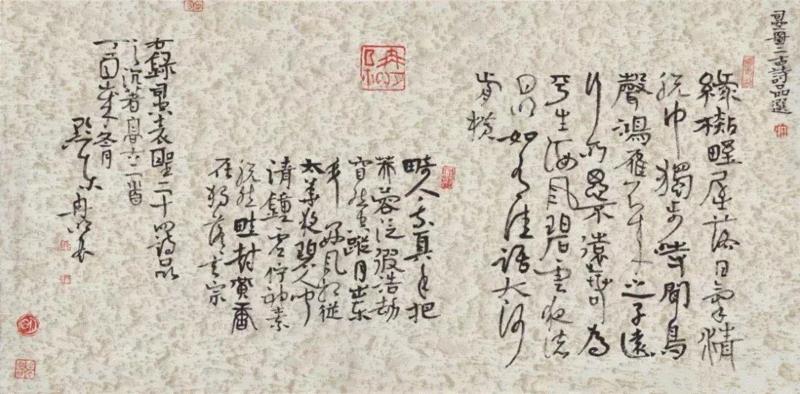 詩品選
緑杉壄屋落日氣清
脫巾獨步時聞鳥
聲鴻雁不來之子遠
行所思不遠若為
平生海風碧雲夜渚
月明如有佳語大河
前橫
畸人乘真手把
芙蓉泛彼浩劫
窅然空蹤月出東
斗好風相從
太華夜碧人聞
清鐘虛佇神素
脫然畦封黃唐
在獨落落玄宗
右録司空表聖二十四詩品
之沉著高古二首
丁酉歲冬月